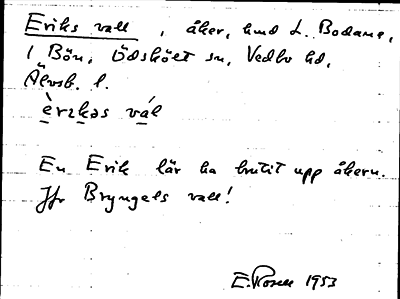 Eriks vall, åker, hmd L. Bodane,
1 Bön, Ödskölt sn, Vedbo hd,
Älvsb. l.
èrɩkəs vál
En Erik lär ha brutit upp åkern.
Jfr Bryngels vall!
E. Rosell 1953